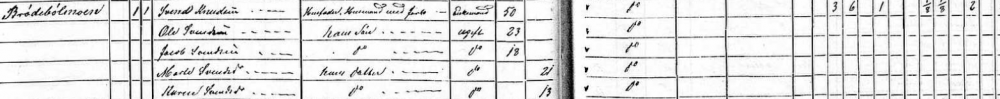 Brödebölmoen 1 1 Svend Knudsen Huusfader, Huusmand med Jord Enkemand 50 do 3 6 1 1/8 1/8 2
Ole Svendsen hans Søn ugift 23 do
Jacob Svendsen do do 18 do
Marte Svendsd hans Datter do 21 do
Karen Svendsd do do 13 do